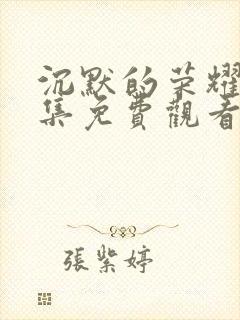 沉默的荣耀
集免費觀看
張紫婷